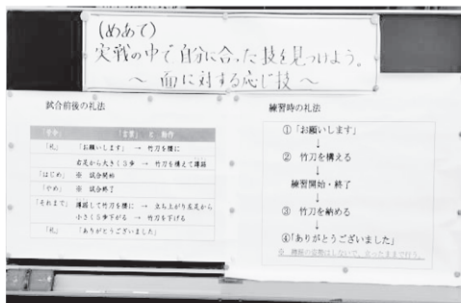 (めあて)
実戦の中で自分に合った技を見つけよう。
～ 面に対する応じ技 ～
試合前後の礼法
「号令」 「言葉」 と 動作
「礼」 「お願いします」 → 竹刀を腰に
右足から大きく3歩 → 竹刀を構えて蹲踞
「はじめ」 ※ 試合開始
「やめ」 ※ 試合終了
「それまで」 蹲踞して竹刀を腰に → 立ち上がり左足から
小さく5歩下がる → 竹刀を下げる
「礼」 「ありがとうございました」
練習時の礼法
①「お願いします」
↓
② 竹刀を構える
↓
練習開始・終了
↓
③ 竹刀を納める
↓
④「ありがとうございました」